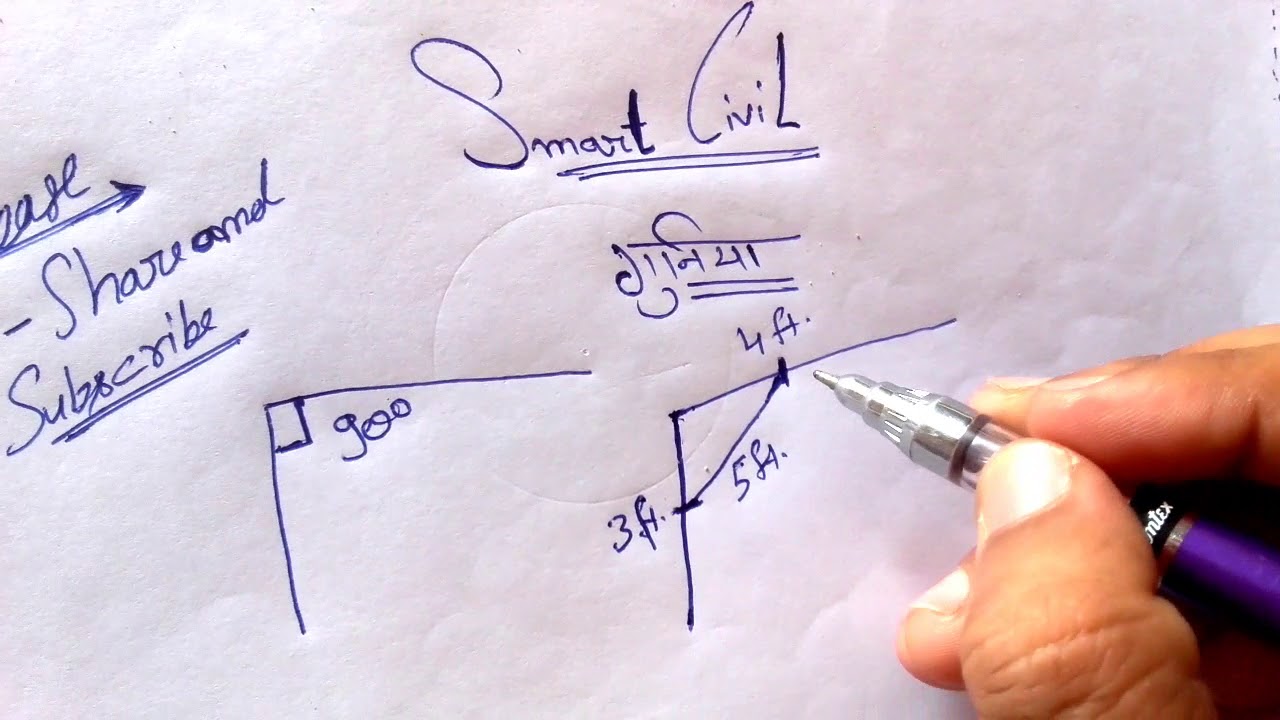 Smart Civil
गुनिया
- Share and
Subscribe
90°
4 ft.
5 ft.
3 ft.